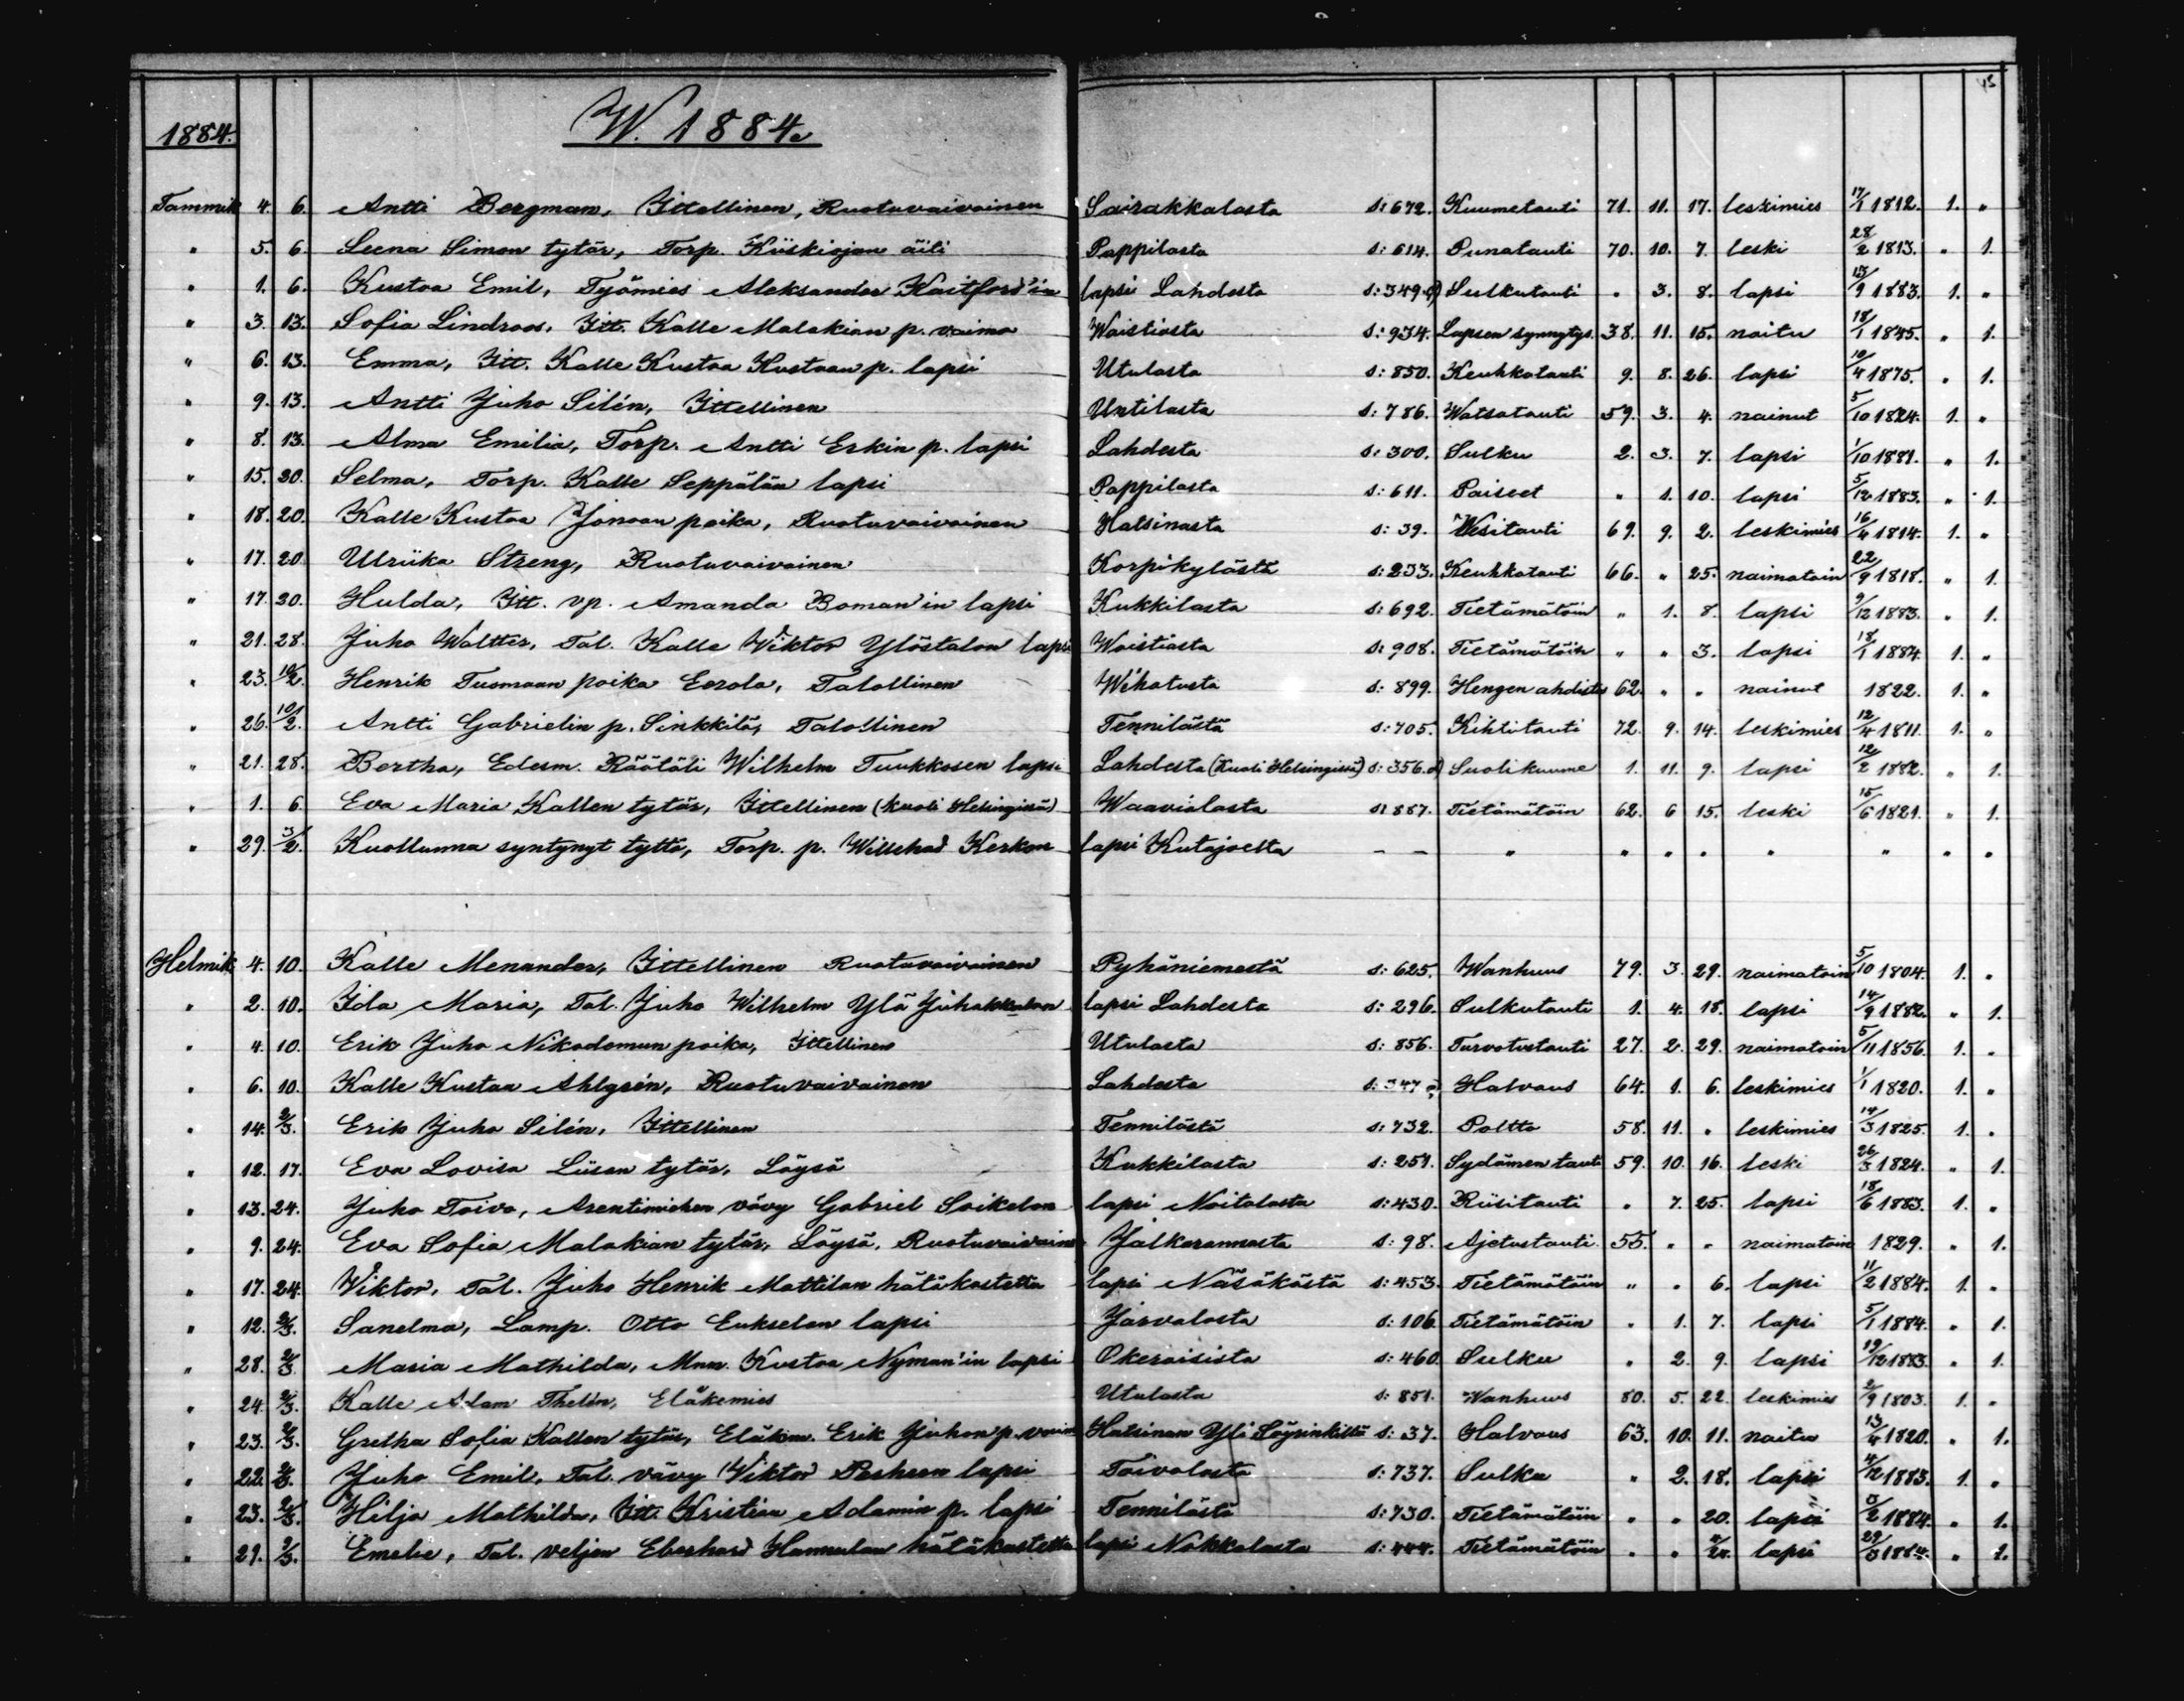 1884. W. 1884.
Tammik 4. 6. Antti Bergman, Ittellinen, Ruotuvaivainen Sairakkalasta s: 672. Kuumetauti 71. 11. 17. leskimies 17/1 1812. 1. "
" 5. 6. Leena Simon tytär, Torp. Kiiskiojan äiti Pappilasta s: 614. Punatauti 70. 10. 7. leski 28/2 1813. " 1.
" 1. 6. Kustaa Emil, Työmies Aleksander Kaitford'in lapsi Lahdesta s: 349. Sulkutauti " 3. 8. lapsi /9 1883. 1. "
" 3. 13. Sofia Lindroos, Itt. Kalle Malakian p. vaimo Waistiasta s: 934. Lapsen synnytys. 38. 11. 15. naitu 18/1 1845. " 1.
" 6. 13. Emma, Itt. Kalle Kustaa Kustaan p. lapsi Utulasta s: 850. Keuhkotauti 9. 8. 26. lapsi 10/4 1875. " 1.
" 9. 13. Antti Juho Silén, Ittellinen Untilasta s: 786. Watsatauti 59. 3. 4. nainut 5/10 1824. 1. "
" 8. 13. Alma Emilia, Torp. Antti Erkin p. lapsi Lahdesta s: 300. Sulku 2. 3. 7. lapsi 1/10 1881. " 1.
" 15. 20. Selma, Torp. Kalle Seppälän lapsi Pappilasta s: 611. Paiseet " 1. 10. lapsi 5/12 1883. " 1.
" 18. 20. Kalle Kustaa Joonaan poika, Ruotuvaivainen Hatsinasta s: 39. Wesitauti 69. 9. 2. leskimies 16/4 1814. 1. "
" 17. 20. Ulriika Streng, Ruotuvaivainen Korpikylästä s: 233. Keuhkotauti 66. " 25. naimatoin 22/9 1818. " 1.
" 17. 20. Hulda, Itt. vp. Amanda Boman'in lapsi Kukkilasta s: 692. Tietämätöin " 1. 8. lapsi 9/12 1883. " 1.
" 21. 28. Juho Waltter, Tal. Kalle Wiktor Ylöstalon lapsi Waistiasta s: 908. Tietämätöin " " 3. lapsi 18/1 1884. 1. "
" 23. 10/2. Henrik Tuomaan poika Eerola, Talollinen Wähatusta s: 899. Hengen ahdistus 62. " " nainut 1822. 1. "
" 26. 10/2. Antti Gabrielin p. Sinkkilä, Talollinen Tennilästä s: 705. Kihtitauti 72. 9. 14. leskimies 12/4 1811. 1. "
" 21. 28. Bertha, Edesm. Räätäli Wilhelm Tuukkosen lapsi Lahdesta (Kuoli Helsingissä) s: 356. Suolikuume 1. 11. 9. lapsi 12/2 1882. " 1.
" 1. 6. Eva Maria Kallen tytär, Ittellinen (kuoli Helsingissä) Waavialasta s: 887. Tietämätöin 62. 6 15. leski 15/6 1821. " 1.
" 29. 3/2. Kuollunna syntynyt tyttö, Torp. p. Willehad Kerkon lapsi Kutajoelta – – " " " " " " " "
Helmik 4. 10. Kalle Menander, Ittellinen Ruotuvaivainen Pyhäniemestä s: 625. Wanhuus 79. 3. 29. naimatoin 5/10 1804. 1. "
" 2. 10. Ida Maria, Tal. Juho Wilhelm Ylä Juhakkalan lapsi Lahdesta s: 296. Sulkutauti 1. 4. 18. lapsi 14/9 1882. " 1.
" 4. 10. Erik Juho Nikodemun poika, Ittellinen Utulasta s: 856. Turvotustauti 27. 2. 29. naimatoin 5/11 1856. 1. "
" 6. 10. Kalle Kustaa Ahlgrén, Ruotuvaivainen Lahdesta s: 347 Halvaus 64. 1. 6. leskimies 1/1 1820. 1. "
" 14. 2/3. Erik Juho Silén, Ittellinen Tennilästä s: 732. Poltto 58. 11. " leskimies 14/3 1825. 1. "
" 12. 17. Eva Lovisa Liisan tytär, Löysä Kukkilasta s: 251. Sydämen tauti 59. 10. 16. leski 26/3 1824. " 1.
" 13. 24. Juho Toivo, Arentimiehen vävy Gabriel Soikelan lapsi Noitalasta s: 430. Riisitauti " 7. 25. lapsi 18/6 1883. 1. "
" 9. 24. Eva Sofia Malakian tytär, Löysä, Ruotuvaivainen Jalkarannasta s: 98. Ajetustauti. 55. " " naimatoin 1829. " 1.
" 17. 24. Wiktor, Tal. Juho Henrik Mattilan hätäkastettu lapsi Näsäkästä s: 453. Tietämätöin " " 6. lapsi 11/2 1884. 1. "
" 12. 2/3. Sanelma, Lamp. Otto Eukselan lapsi Järvalasta s: 106 Tietämätöin " 1. 7. lapsi 5/1 1884. " 1.
" 28. 2/3. Maria Mathilda, Kustaa Nyman'in lapsi Okeroisista s: 460 Sulku " 2. 9. lapsi 19/12 1883. " 1.
" 24. 2/3. Kalle Adam Thelén, Eläkemies Utulasta s: 851. Wanhuus 80. 5. 22. leskimies 2/9 1803. 1. "
" 23. 2/3. Gretha Sofia Kallen tytär, Eläkem. Erik Juhon p. vaimo Hatsinan Yli Löyrinkiltä s: 37. Halvaus 63. 10. 11. naitu 13/4 1820. " 1.
" 22. 2/3. Juho Emil, Tal. vävy Wiktor lapsi Toivolasta s: 737. Sulku " 2. 18. lapsi 4/12 1883. 1. "
" 23. 2/3. Hilja Mathilda, Itt. Kristian Adamin p. lapsi Tennilästä s: 730. Tietämätöin " " 20. lapsi 3/2 1884. " 1.
" 29. 9/3. Emelie, Tal. veljen Eberhard Hannulan hätäkastettu lapsi Nokkalasta s: 444. Tietämätöin " " lapsi 29/ 1884. " 1.